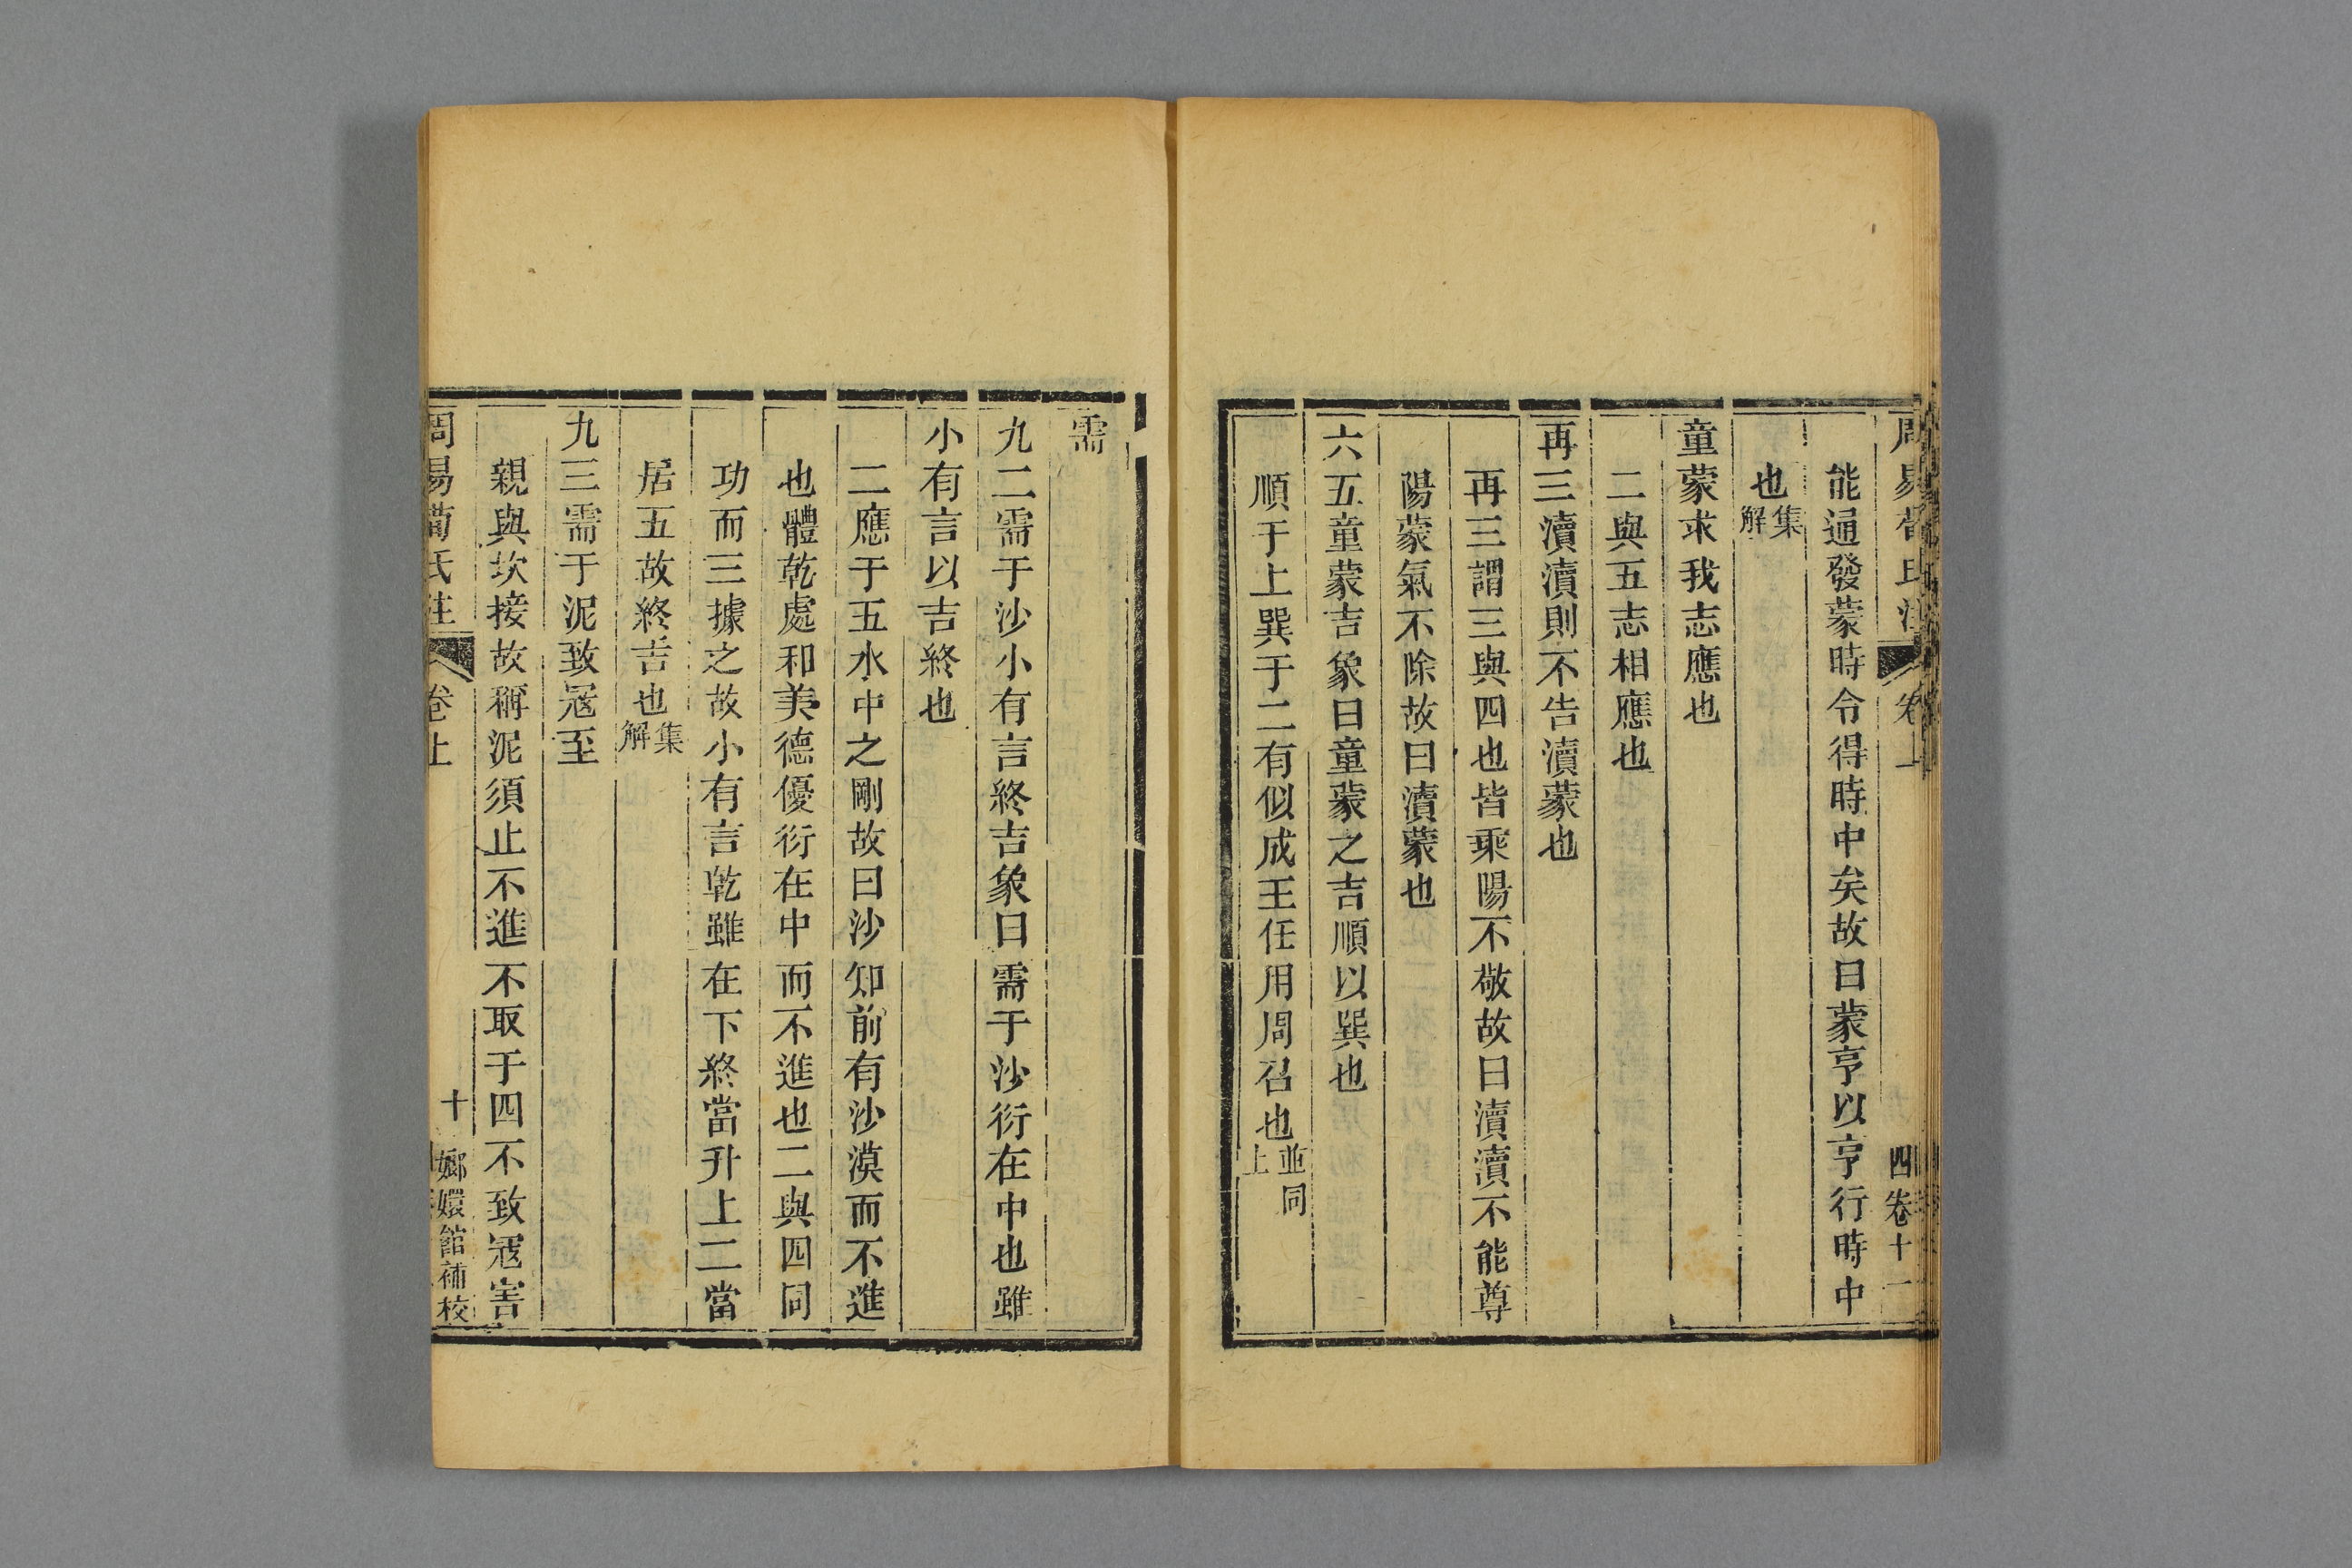 能通發蒙時令得時中矣故曰蒙亨以亨行時中
也集解
童蒙求我志應也
二與五志相應也
再三瀆瀆則不告瀆蒙也
再三謂三與四也皆乘陽不敬故曰瀆瀆不能尊
陽蒙氣不除故曰瀆蒙也
六五童蒙吉象曰童蒙之吉順以巽也
順于上巽于二有似成王任用周召也並同上
需
九二需于沙小有言終吉象曰需于沙衍在中也雖
小有言以吉終也
二應于五水中之剛故曰沙知前有沙漠而不進
也體乾處和美德優衍在中而不進也二與四同
功而三據之故小有言乾雖在下終當升上二當
居五故終吉也集解
九三需于泥致寇至
親與坎接故稱泥須止不進不取于四不致寇害
周易荀氏注 卷上 十 嫏嬛館補校